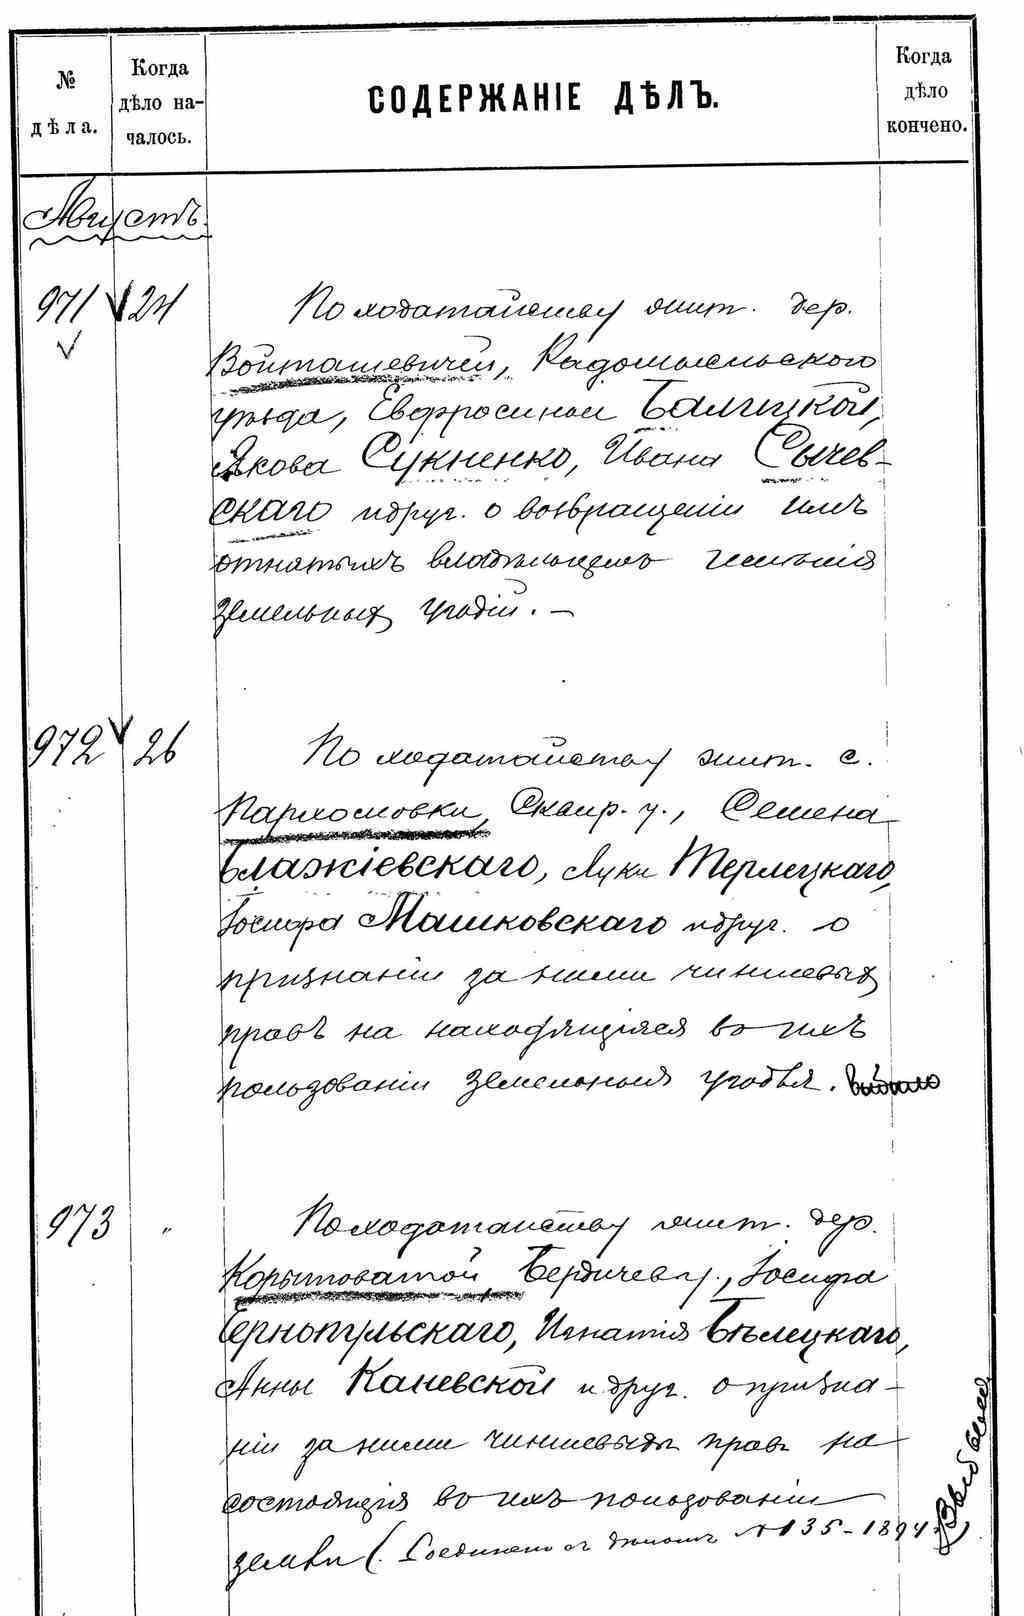 № дѣла.
Когда дѣло началось.
СОДЕРЖАНІЕ ДѢЛЪ.
Когда дѣло кончено.
Августъ.
971 24 По ходатайству жит. дер.
Войташевичей, Радомысльского
уѣзда, Евфросиньи Балицкой,
Якова Сукненко, Ивана Сычев-
скаго и друг. о возвращеніи имъ
отнятыхъ владѣльцемъ имѣнія
земельныхъ угодій. —
972 26 По ходатайству жит. с.
Пархомовки, Сквир. у., Семена
Блажіевскаго, Луки Терлецкаго,
Іосифа Машковскаго и друг. о
признаніи за ними чиншевыхъ
правъ на находящіяся во ихъ
пользованіи земельныя угодья.
973 „ По ходатайству жит. дер.
Корытоватой Бердичев у., Іосифа
Тернопульскаго, Игнатія Бѣлецкаго,
Анны Каневской и друг. о призна-
ніи за ними чиншевыхъ правъ на
состоящія во ихъ пользованіи
земли (Соединено съ дѣломъ № 135-1894)